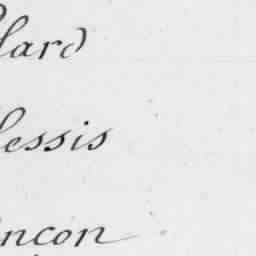 lard
lessis
incon